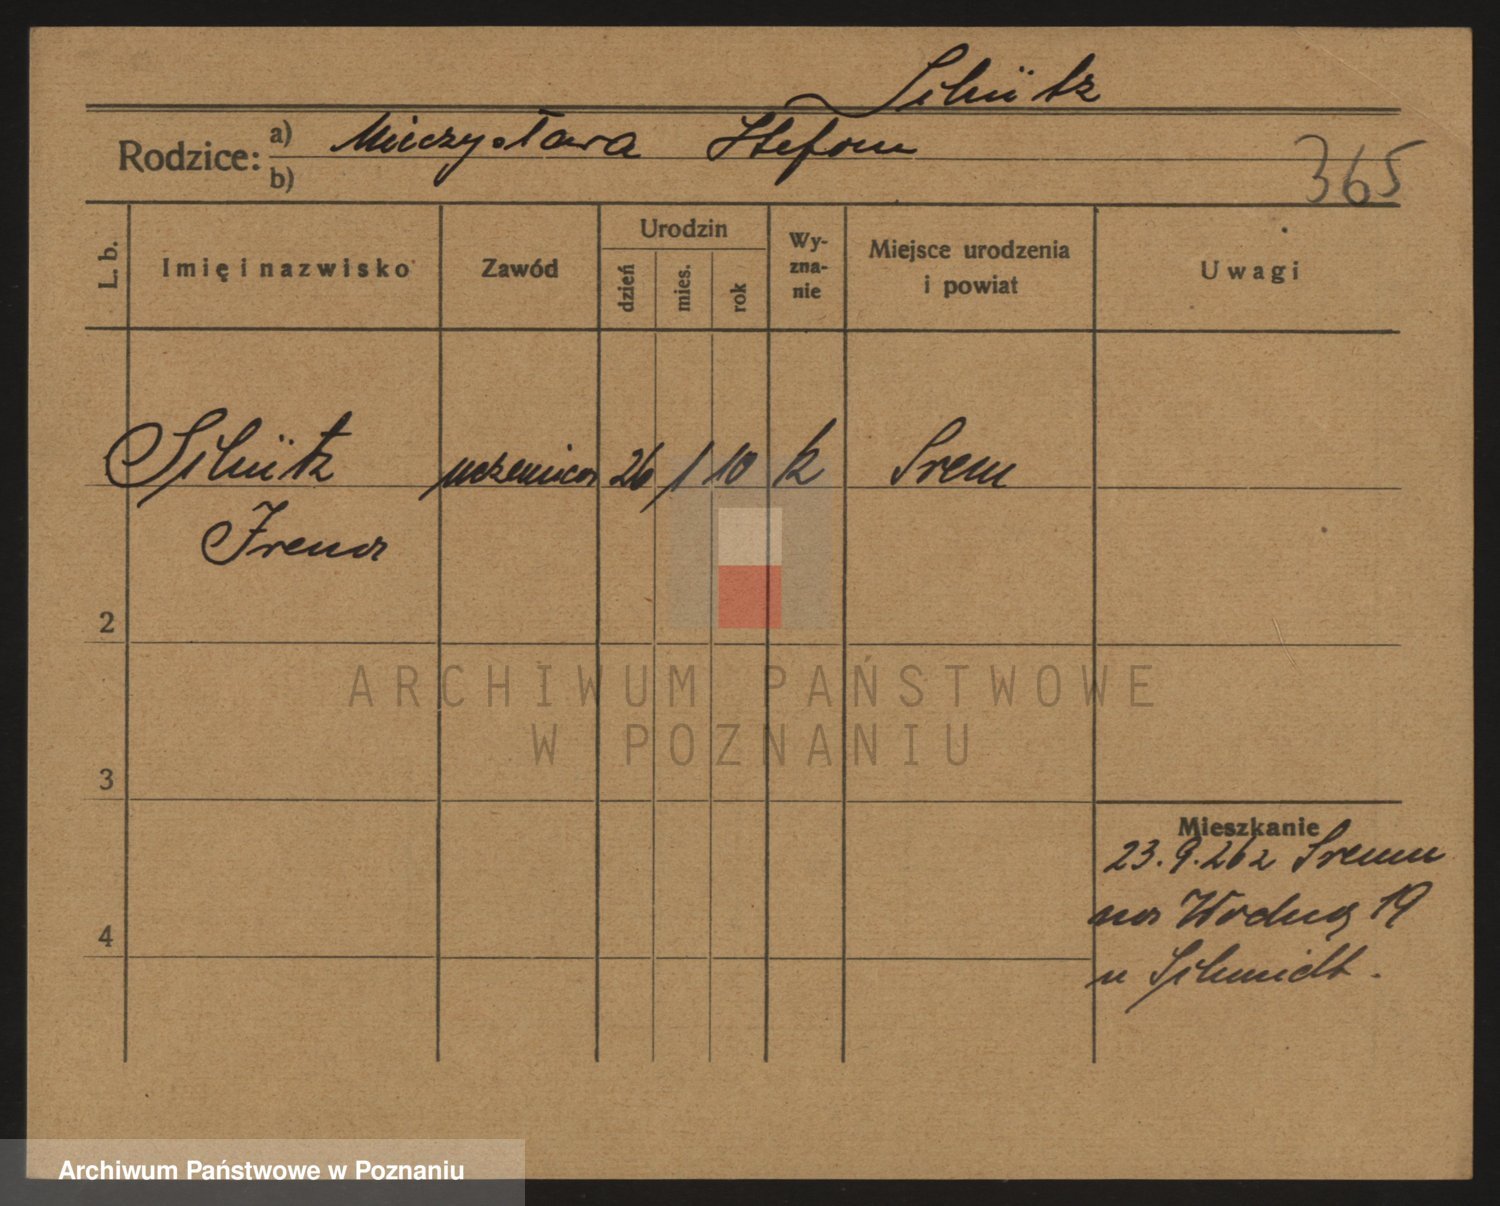 Schütz
Rodzice: a) Mieczysława Stefan
b)
365
L. b.
Imię i nazwisko
Zawód
Urodzin
dzień
mies.
rok
Wy-
zna-
nie
Miejsce urodzenia
i powiat
Uwagi
Schütz uczenica 26 1 10 k Śrem
Irena
2
3
4
Mieszkanie
23.9.26 z Śremu
Wodną 19
u Schmidt.
ARCHIWUM PAŃSTWOWE
W POZNANIU
Archiwum Państwowe w Poznaniu